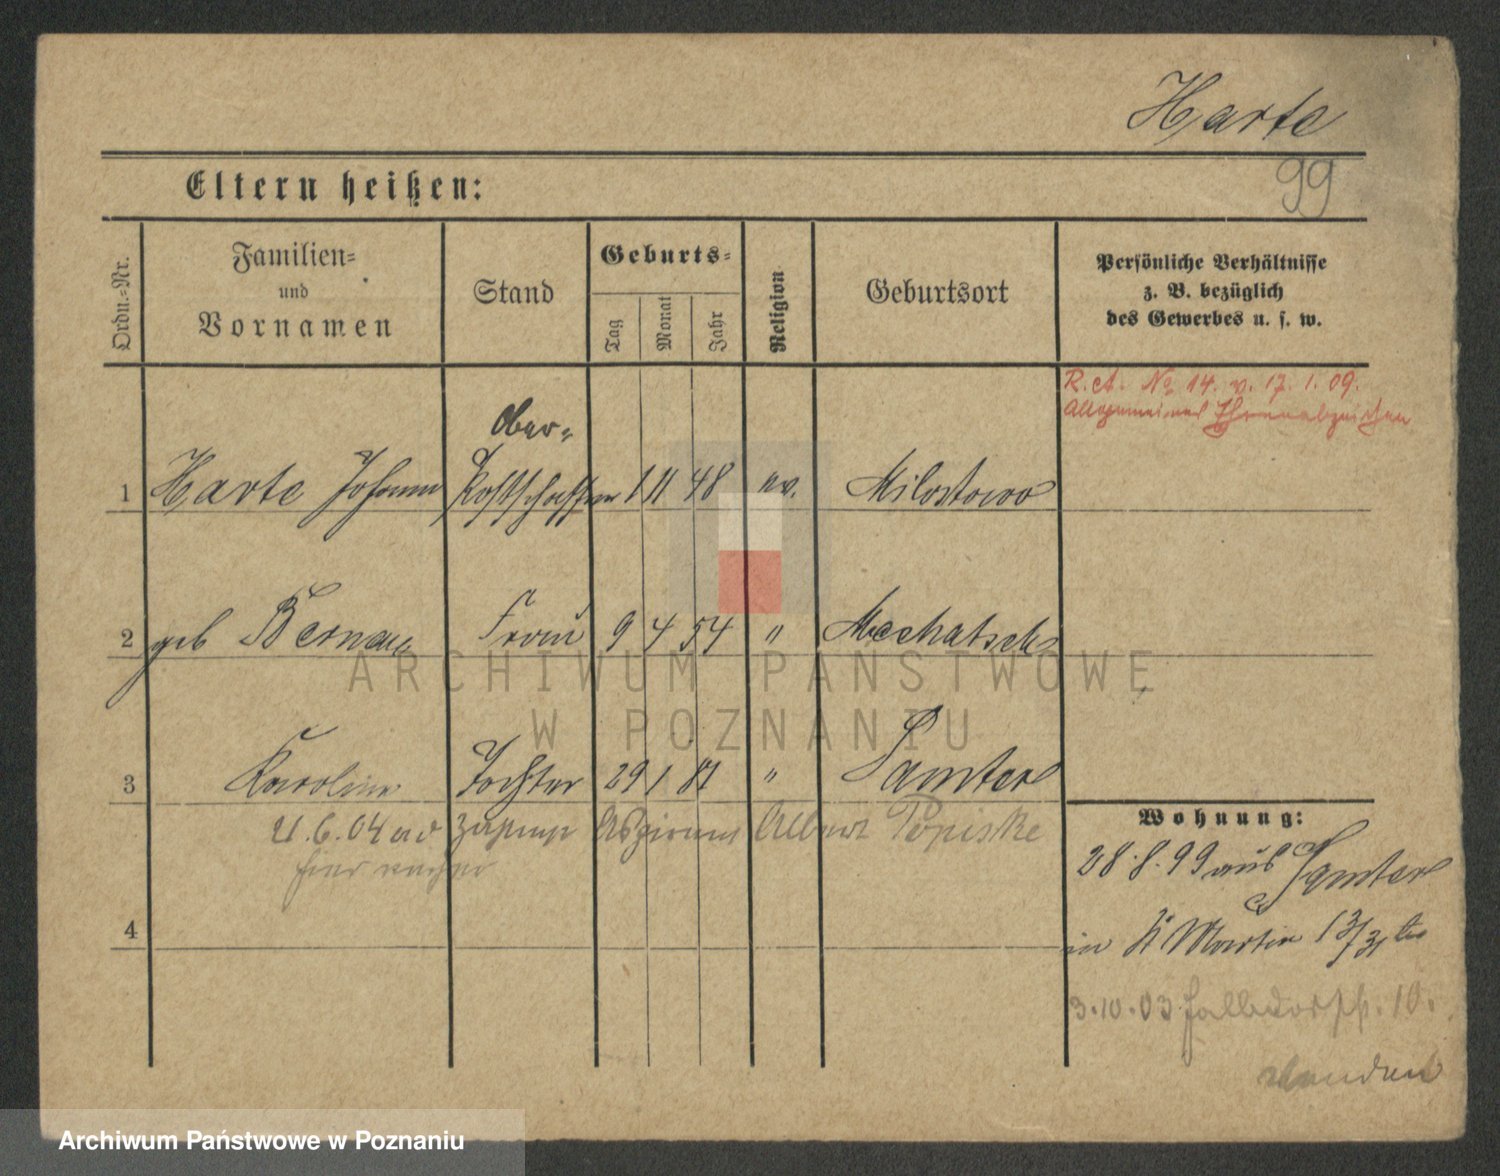 Harte
99
Eltern heißen:
Ordn.-Nr.
Familien-
und
Vornamen
Stand
Geburts-
Tag
Monat
Jahr
Religion
Geburtsort
Persönliche Verhältnisse
z. B. bezüglich
des Gewerbes u. s. w.
R. ct. No 14. v. 17. 1. 09.
Allgemeines Ehrenabzeichen
Ober-
1 Harte Johann Postschaffner 1 11 48 ev. Milostowo
2 geb Bernau Frau 9 4 54 " Mechatsch
3 Karoline Tochter 29 1 81 " Samter
Albert Popiske
4
Wohnung:
28.8.99 aus Samter
in St Martin 13/31
3.10.03 10.
ARCHIWUM PAŃSTWOWE
W POZNANIU
Archiwum Państwowe w Poznaniu